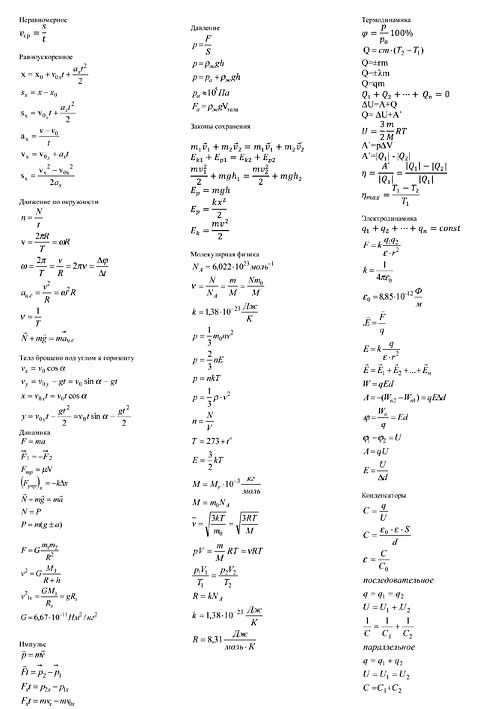 Неравномерное
v_ср = s/t
Равноускоренное
x = x₀ + v₀ₓt + aₓt²/2
sₓ = x − x₀
sₓ = v₀ₓt + aₓt²/2
aₓ = (v − v₀)/t
vₓ = v₀ₓ + aₓt
sₓ = (vₓ² − v₀ₓ²)/2aₓ
Движение по окружности
n = N/t
v = 2πR/T = ωR
ω = 2π/T = v/R = 2πν = Δφ/Δt
a_ц.с = v²/R = ω²R
ν = 1/T
N⃗ + mg⃗ = ma⃗_ц.с
Тело брошено под углом к горизонту
vₓ = v₀ cos α
v_y = v₀y − gt = v₀ sin α − gt
x = v₀ₓt = v₀t cos α
y = v₀yt − gt²/2 = v₀t sin α − gt²/2
Динамика
F = ma
F⃗₁ = −F⃗₂
F_тр = μN
(F_упр)ₓ = −kΔx
N⃗ + mg⃗ = ma⃗
N = P
P = m(g ± a)
F = G m₁m₂/R²
v² = G M₃/(R + h)
GM₃/R₃ = gR₃
G = 6,67·10⁻¹¹ Нм²/кг²
Импульс
p⃗ = mv⃗
F⃗t = p⃗₂ − p⃗₁
Fₓt = p₂ₓ − p₁ₓ
Fₓt = mvₓ − mv₀ₓ
Давление
p = F/S
p = ρ_ж gh
p = p_a + ρ_ж gh
p_a ≈ 10⁵ Па
F_a = ρ_ж gV_тела
Законы сохранения
m₁v⃗₁ + m₂v⃗₂ = m₁v⃗₁ + m₂v⃗₂
E_k1 + E_p1 = E_k2 + E_p2
mv₁²/2 + mgh₁ = mv₂²/2 + mgh₂
E_p = mgh
E_p = kx²/2
E_k = mv²/2
Молекулярная физика
N_A = 6,022·10²³ моль⁻¹
ν = N/N_A = m/M = Nm₀/M
k = 1,38·10⁻²³ Дж/К
p = 1/3 m₀nv²
p = 2/3 nE
p = nkT
p = 1/3 ρ·v²
n = N/V
T = 273 + t°
E = 3/2 kT
M = M_r·10⁻³ кг/моль
M = m₀N_A
v̄ = √(3kT/m₀) = √(3RT/M)
pV = m/M RT = νRT
p₁V₁/T₁ = p₂V₂/T₂
R = kN_A
k = 1,38·10⁻²³ Дж/К
R = 8,31 Дж/моль·К
Термодинамика
φ = p/p₀ 100%
Q = cm·(T₂ − T₁)
Q=±rm
Q=±λm
Q=qm
Q₁ + Q₂ + ⋯ + Qₙ = 0
ΔU=A+Q
Q= ΔU+A'
U = 3/2 m/M RT
A'=pΔV
A'=|Q₁| - |Q₂|
η = A'/|Q₁| = (|Q₁| − |Q₂|)/|Q₁|
η_max = (T₁ − T₂)/T₁
Электродинамика
q₁ + q₂ + ⋯ + qₙ = const
F = k q₁q₂/(ε·r²)
k = 1/4πε₀
ε₀ = 8,85·10⁻¹² Ф/м
E⃗ = F⃗/q
E = k q/(ε·r²)
E⃗ = E⃗₁ + E⃗₂ + ... + E⃗ₙ
W = qEd
A = −(W_п2 − W_п1) = qEΔd
φ = W_п/q = Ed
φ₁ − φ₂ = U
A = qU
E = U/Δd
Конденсаторы
C = q/U
C = ε₀·ε·S/d
ε = C/C₀
последовательное
q = q₁ = q₂
U = U₁ + U₂
1/C = 1/C₁ + 1/C₂
параллельное
q = q₁ + q₂
U = U₁ = U₂
C = C₁+C₂